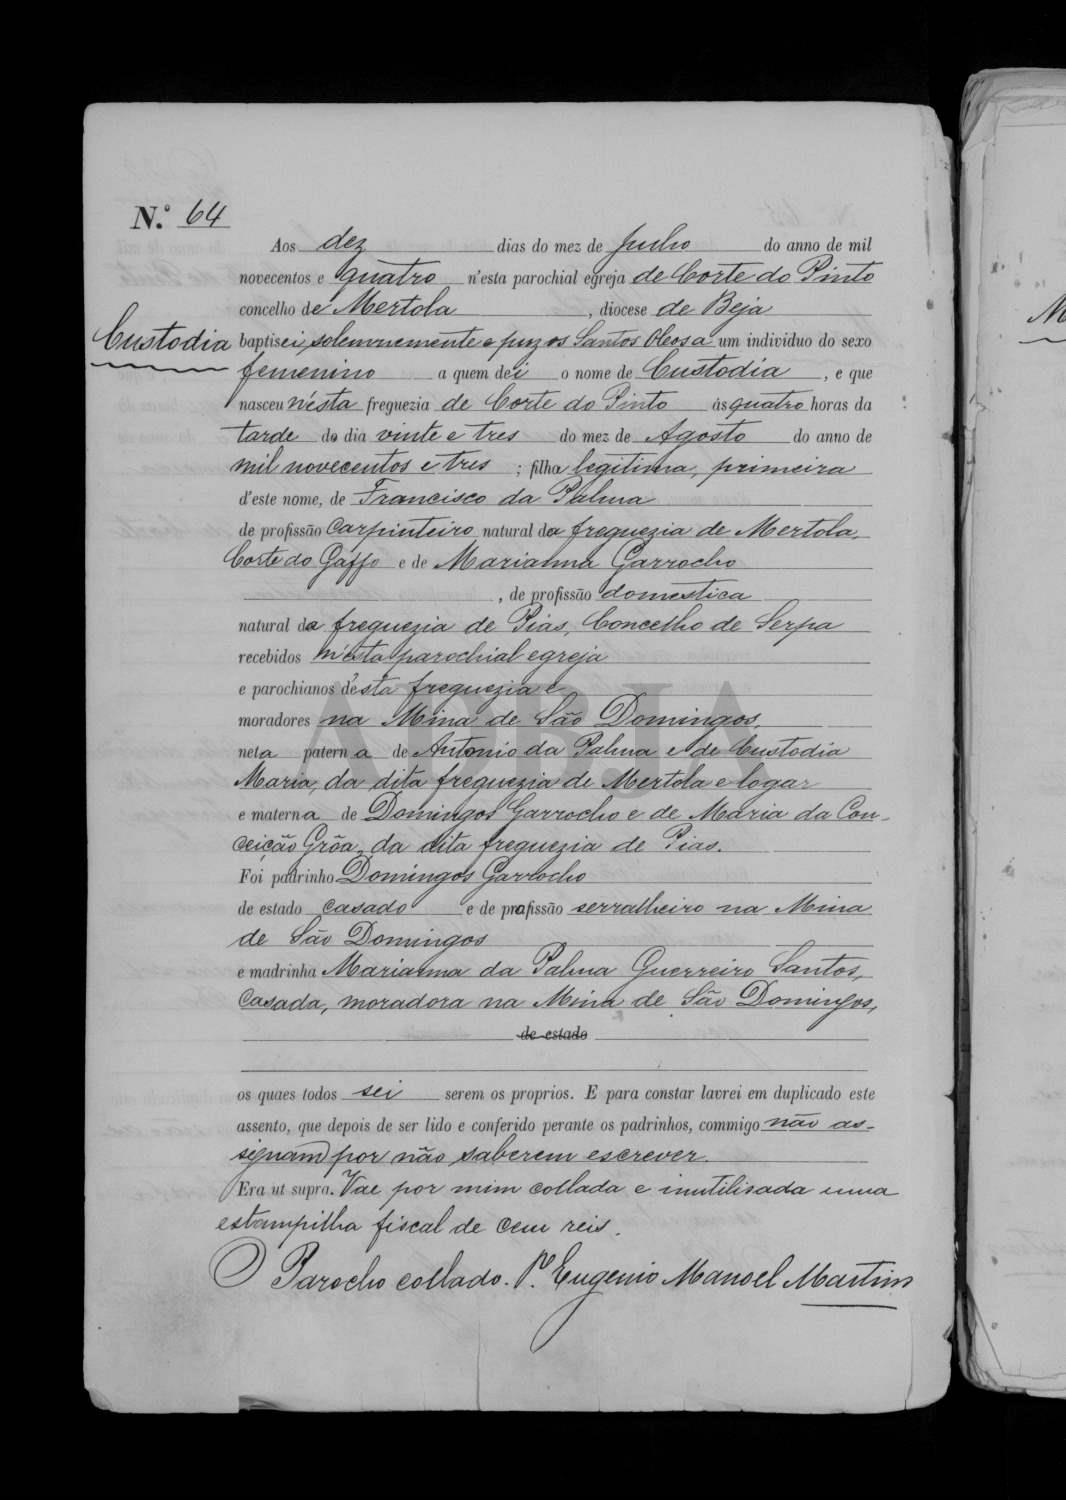 N.º 64
Aos dez dias do mez de Julho do anno de mil
novecentos e quatro n'esta parochial egreja de Corte do Pinto
concelho de Mertola, diocese de Beja
Custodia
baptisei solemnemente e puz os Santos Oleos a um individuo do sexo
femenino a quem dei o nome de Custodia, e que
nasceu n'ésta freguezia de Corte do Pinto ás quatro horas da
tarde do dia vinte e tres do mez de Agosto do anno de
mil novecentos e tres; filha legitima, primeira
d'este nome, de Francisco da Palma
de profissão carpinteiro natural da freguezia de Mertola,
Corte do Gaffo e de Marianna Garrocho
, de profissão domestica
natural da freguezia de Pias, Concelho de Serpa
recebidos n'ésta parochial egreja
e parochianos d'ésta freguezia e
moradores na Mina de São Domingos,
neta paterna de Antonio da Palma e de Custodia
Maria, da dita freguezia de Mertola e logar
e materna de Domingos Garrocho e de Maria da Con-
ceição Grôa, da dita freguezia de Pias.
Foi padrinho Domingos Garrocho
de estado casado e de profissão serralheiro na Mina
de São Domingos
e madrinha Marianna da Palma Guerreiro Santos,
casada, moradora na Mina de São Domingos,
de estado
os quaes todos sei serem os proprios. E para constar lavrei em duplicado este
assento, que depois de ser lido e conferido perante os padrinhos, commigo não as-
signam por não saberem escrever.
Era ut supra. Vae por mim collada e inutilisada uma
estampilha fiscal de cem reis.
O Parocho collado. P.e Eugenio Manoel Martins
ADBJA
M